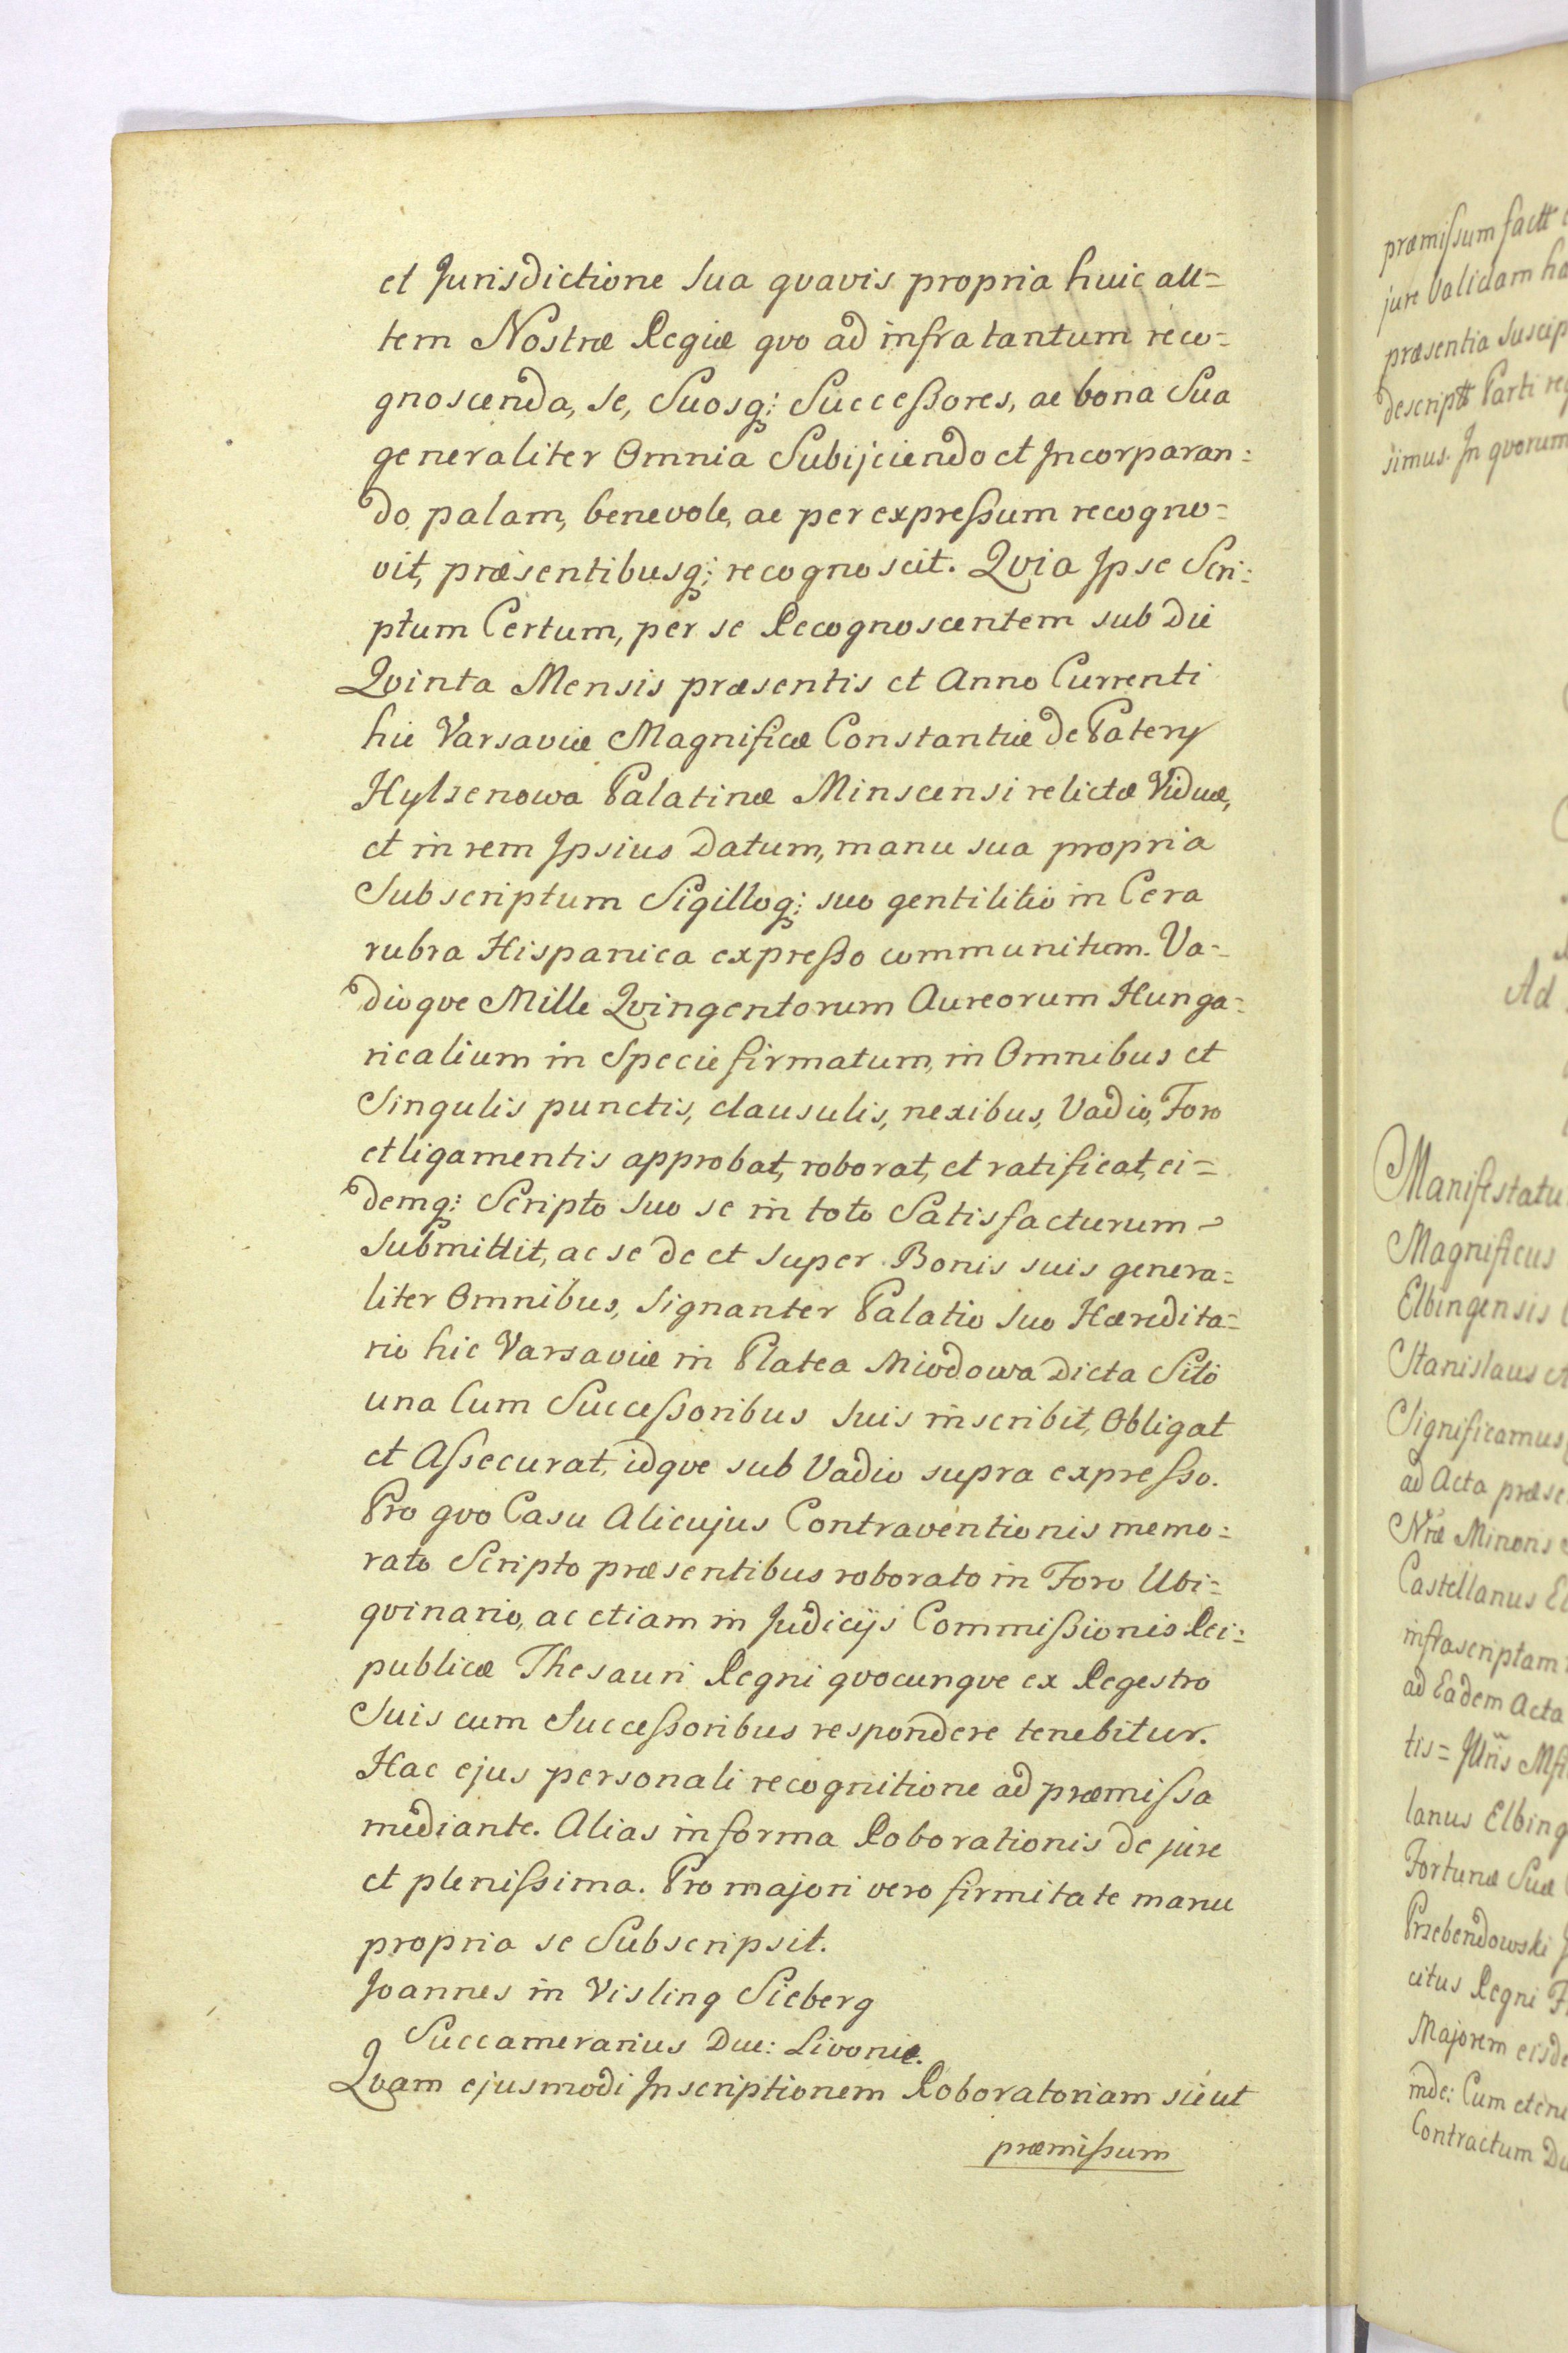 et Jurisdictione sua qvavis propria huic au=
tem Nostræ Regiæ qvo ad infra tantum reco=
gnoscenda, se, Suosq; Successores, ac bona Sua
generaliter Omnia Subijciendo et Incorparan=
do, palam, benevole, ac per expressum recogno=
vit, præsentibusq; recognoscit. Qvia Ipse Scri=
ptum Certum, per se Recognoscentem sub Die
Qvinta Mensis præsentis et Anno Currenti
hic Varsaviæ Magnificæ Constantiæ de Platery
Hylzenowa Palatinæ Minscensi relictæ Viduæ,
et in rem Ipsius Datum, manu sua propria
Subscriptum Sigilloq; suo gentilitio in Cera
rubra Hispanica expresso communitum. Va=
dioqve Mille Qvingentorum Aureorum Hunga=
ricalium in Specie firmatum, in Omnibus et
Singulis punctis, clausulis, nexibus, Vadio, Foro
et ligamentis approbat, roborat, et ratificat, ei=
demq; Scripto suo se in toto Satisfacturum
submittit, ac se de et super Bonis suis genera=
liter Omnibus, signanter Palatio suo Hæredita=
rio hic Varsaviæ in Platea Miodowa Dicta Sito
una Cum Successoribus suis inscribit, Obligat
et Assecurat, idqve sub Vadio supra expresso.
Pro qvo Casu Alicujus Contraventionis memo=
rato Scripto præsentibus roborato in Foro Ubi=
qvinario, ac etiam in Judicijs Commissionis Rei=
publicæ Thesauri Regni qvocunqve ex Regestro
Suis cum Successoribus respondere tenebitur.
Hac ejus personali recognitione ad præmissa
mediante. Alias in forma Roborationis de jure
et plenissima. Pro majori vero firmitate manu
propria se Subscripsit.
Joannes in Visling Sieberg
Succamerarius Duc: Livoniæ.
Qvam ejusmodi Inscriptionem Roboratoriam sicut
præmissum
præmissum factt
jure Validam
præsentia
descriptt Parti
simus. In qvorum
Ad
Manifestatu
Magnificus
Elbingensis
Stanislaus et
Significamus
ad Acta præse
Nræ Minoris
Castellanus
infrascriptam
ad Eadem Acta
tis=
lanus Elbing
Fortunæ Suæ
Przebendowski
citus Regni
Majorem eisde
inde: Cum
Contractum